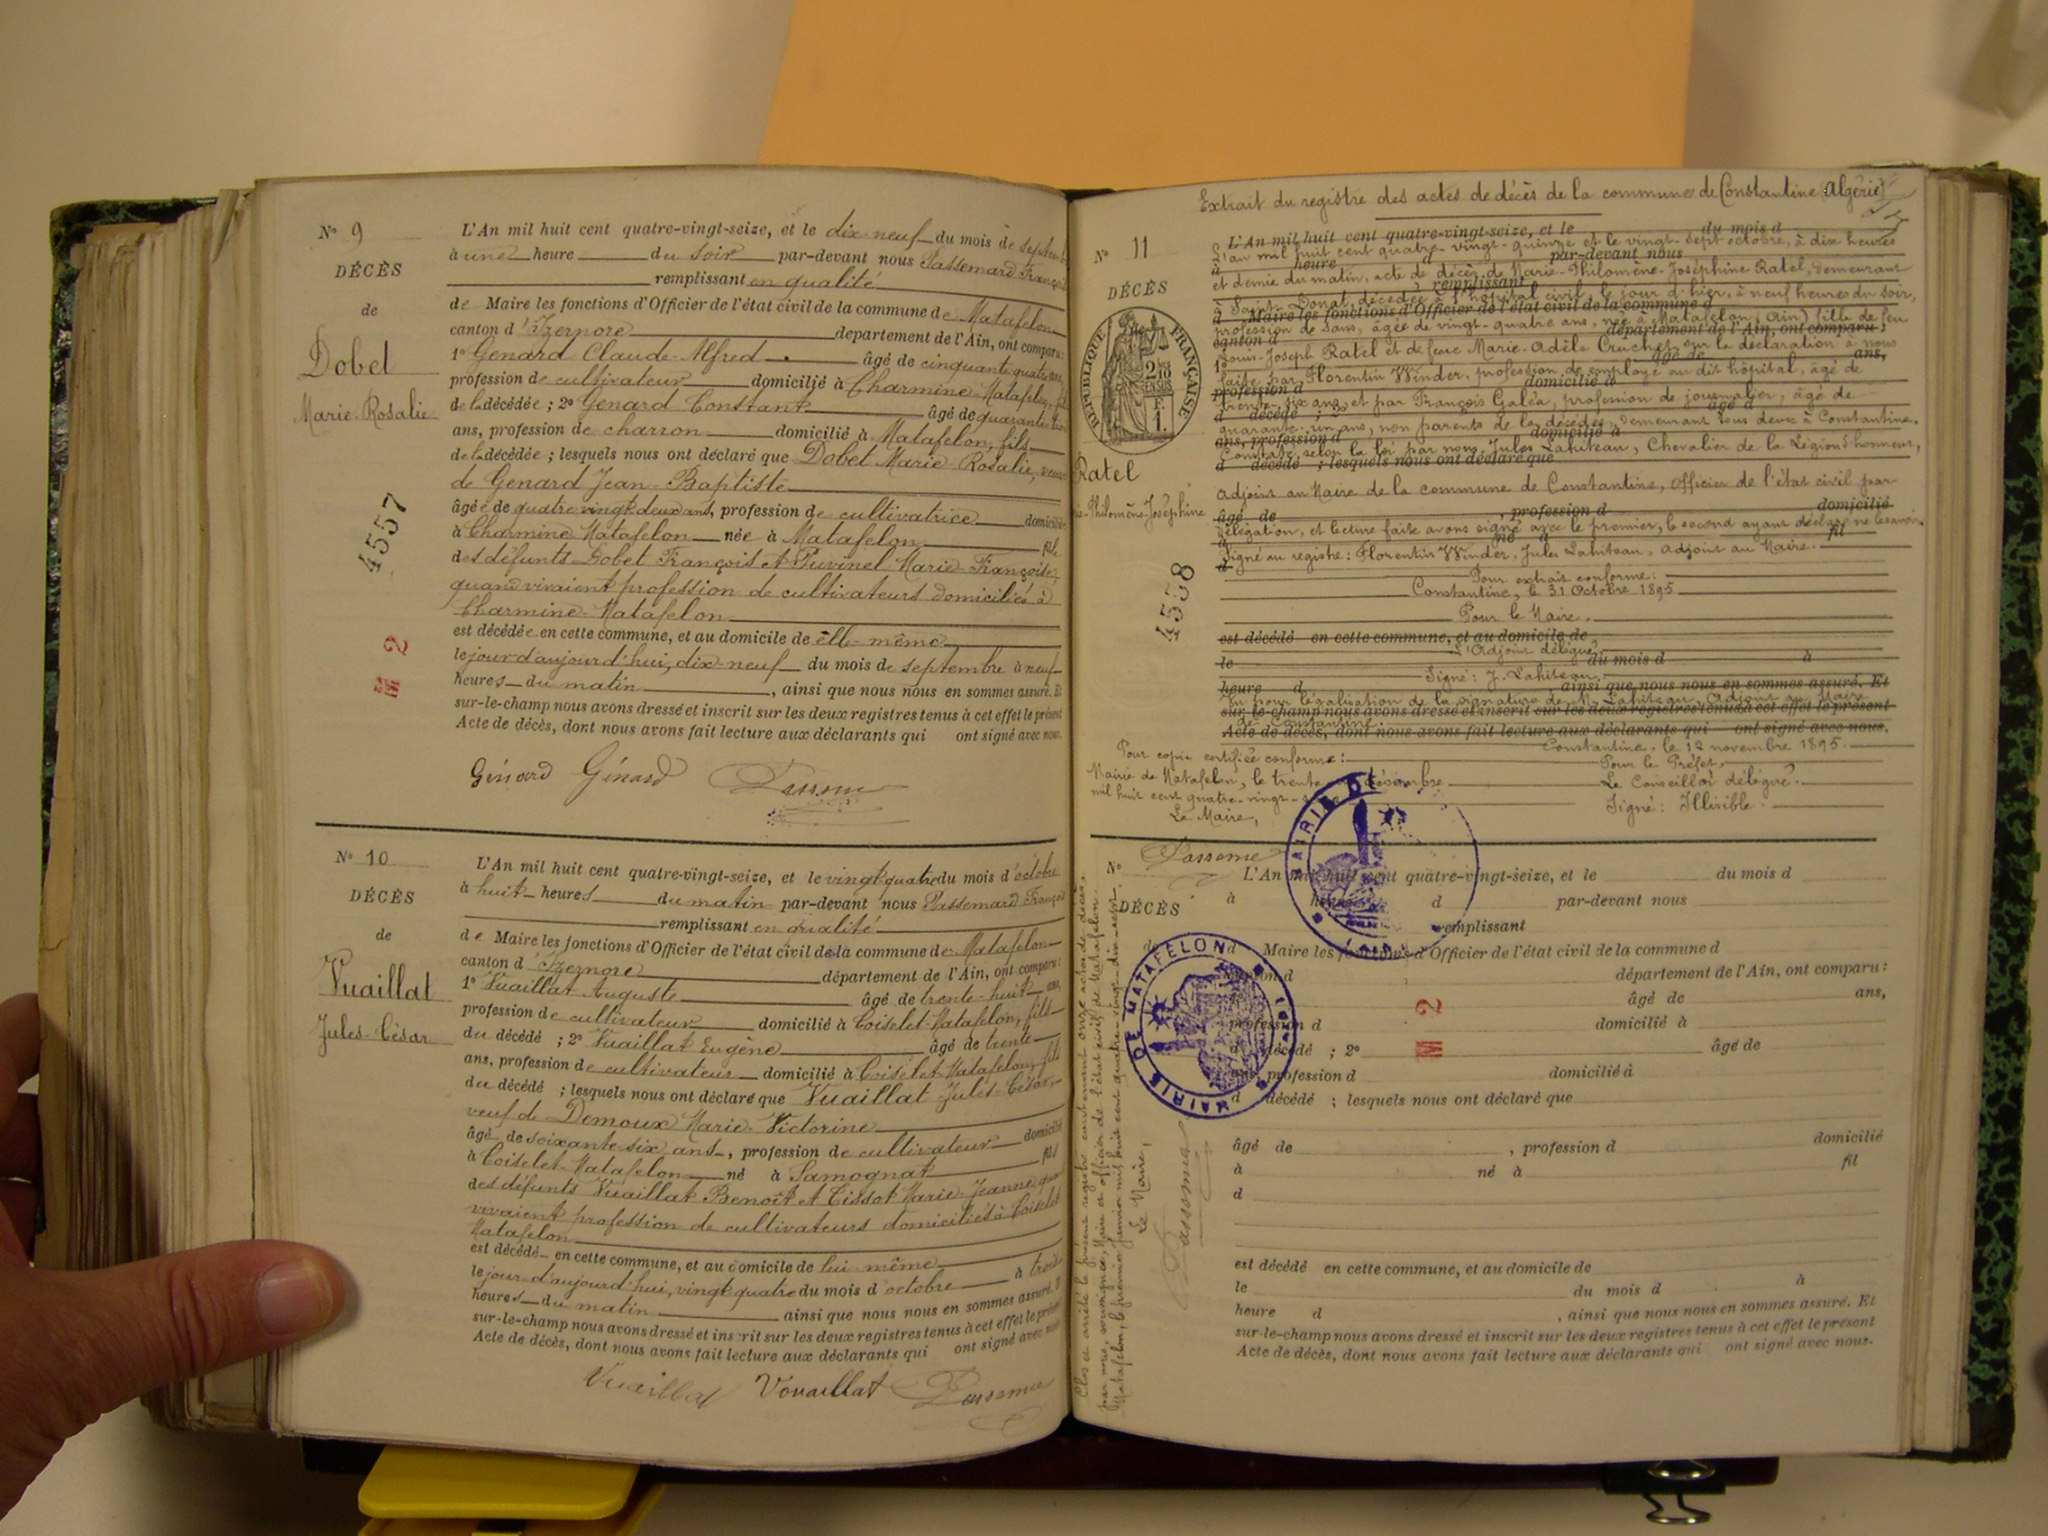 Nº 9
DÉCÈS
de
Dobet
Marie-Rosalie
4557
M 2
L'An mil huit cent quatre-vingt-seize, et le dix-neuf du mois de septembre
à une heure du soir par-devant nous Passemard François
remplissant en qualité
de Maire les fonctions d'Officier de l'état civil de la commune de Matafelon
canton d'Izernore département de l'Ain, ont comparu:
1º Genard Claude-Alfred âgé de cinquante quatre ans,
profession de cultivateur domicilié à Charmine-Matafelon, fils
de la décédée; 2º Genard Constant âgé de quarante
ans, profession de charron domicilié à Matafelon, fils
de la décédée; lesquels nous ont déclaré que Dobet Marie-Rosalie, veuve
de Genard Jean-Baptiste
âgée de quatre vingt deux ans, profession de cultivatrice domiciliée
à Charmine Matafelon née à Matafelon fille
des défunts Dobet François et Puvinel Marie-Françoise
quand vivaient profession de cultivateurs domiciliés à
Charmine-Matafelon
est décédée en cette commune, et au domicile de elle-même
le jour d'aujourd'hui, dix-neuf du mois de septembre à neuf
heures du matin, ainsi que nous nous en sommes assuré. Et
sur-le-champ nous avons dressé et inscrit sur les deux registres tenus à cet effet le présent
Acte de décès, dont nous avons fait lecture aux déclarants qui ont signé avec nous.
Génard Génard
Nº 10
DÉCÈS
de
Vuaillat
Jules-César
L'An mil huit cent quatre-vingt-seize, et le vingt quatre du mois d'octobre
à huit heures du matin par-devant nous Passemard François
remplissant en qualité
de Maire les fonctions d'Officier de l'état civil de la commune de Matafelon
canton d'Izernore département de l'Ain, ont comparu:
1º Vuaillat Auguste âgé de trente-huit ans,
profession de cultivateur domicilié à Coiselet-Matafelon, fils
du décédé; 2º Vuaillat Eugène âgé de trente
ans, profession de cultivateur domicilié à Coiselet-Matafelon, fils
du décédé; lesquels nous ont déclaré que Vuaillat Jules-César,
veuf de Demoux Marie-Victorine
âgé de soixante-six ans, profession de cultivateur domicilié
à Coiselet-Matafelon né à Samognat fils
des défunts Vuaillat Benoît et Tissot Marie-Jeanne quand
vivaient profession de cultivateurs domiciliés à Coiselet
Matafelon
est décédé en cette commune, et au domicile de lui-même
le jour d'aujourd'hui, vingt quatre du mois d'octobre à trois
heures du matin, ainsi que nous nous en sommes assuré. Et
sur-le-champ nous avons dressé et inscrit sur les deux registres tenus à cet effet le présent
Acte de décès, dont nous avons fait lecture aux déclarants qui ont signé avec nous
Vuaillat Vouaillat
Extrait du registre des actes de décès de la commune de Constantine (Algérie)
Nº 11
DÉCÈS
RÉPUBLIQUE FRANÇAISE
Ratel
Philomène-Joséphine
4558
L'An mil huit cent quatre-vingt-seize, et le du mois d
L'an mil huit cent quatre-vingt-quinze et le vingt-sept octobre, à dix heures
à heure d par-devant nous
et demie du matin, acte de décès de Marie-Philomène-Joséphine Ratel, demeurant
remplissant
à Saint-Donat, décédée à l'hôpital civil le jour d'hier, à neuf heures du soir,
d Maire les fonctions d'Officier de l'état civil de la commune d
profession de sans, âgée de vingt-quatre ans, née à Matafelon (Ain) fille de feu
canton d département de l'Ain, ont comparu:
Louis-Joseph Ratel et de feue Marie-Adèle Cruchet, sur la déclaration à nous
1º âgé de ans,
faite par Florentin Winder, profession de employé au dit hôpital, âgé de
profession d domicilié à
trente-six ans, et par François Galéa, profession de journalier, âgé de
d décédé; 2º âgé d
quarante-un ans, non parents de la décédée, demeurant tous deux à Constantine.
ans, profession d domicilié à
Constaté, selon la loi, par nous, Jules Lahiteau, Chevalier de la Légion d'honneur,
d décédé; lesquels nous ont déclaré que
Adjoint au Maire de la commune de Constantine, officier de l'état civil par
âgé de, profession d domicilié
délégation, et lecture faite avons signé avec le premier, le second ayant déclaré ne le savoir.
à né à fil
Signé au registre: Florentin Winder, Jules Lahiteau, adjoint au Maire.
d
Pour extrait conforme:
Constantine, le 31 Octobre 1895
Pour le Maire,
est décédé en cette commune, et au domicile de
L'Adjoint délégué,
le du mois d à
Signé: J. Lahiteau,
heure d ainsi que nous nous en sommes assuré. Et
Vu pour légalisation de la signature de M. Lahiteau, Adjoint au Maire
sur-le-champ nous avons dressé et inscrit sur les deux registres tenus à cet effet le présent
de Constantine
Acte de décès, dont nous avons fait lecture aux déclarants qui ont signé avec nous.
Constantine, le 12 novembre 1895.
Pour le Préfet,
Le Conseiller délégué.
Signé: Illisible.
Pour copie certifiée conforme:
Mairie de Matafelon, le trente décembre
mil huit cent quatre-vingt-
Le Maire,
MAIRIE DE
Nº
DÉCÈS
de
L'An mil huit cent quatre-vingt-seize, et le du mois d
à heure d par-devant nous
remplissant
d Maire les fonctions d'Officier de l'état civil de la commune d
canton d département de l'Ain, ont comparu:
âgé de ans,
profession d domicilié à
d décédé; 2º âgé de
ans, profession d domicilié à
d décédé; lesquels nous ont déclaré que
âgé de, profession d domicilié
à né à fil
d
est décédé en cette commune, et au domicile de
le du mois d à
heure d, ainsi que nous nous en sommes assuré. Et
sur-le-champ nous avons dressé et inscrit sur les deux registres tenus à cet effet le présent
Acte de décès, dont nous avons fait lecture aux déclarants qui ont signé avec nous.
M 2
MAIRIE DE MATAFELON (AIN)
Clos et arrêté le présent registre contenant onze actes de décès,
par nous, soussigné, Maire et officier de l'état civil de Matafelon.
Matafelon, le premier janvier mil huit cent quatre-vingt-dix-sept.
Le Maire,